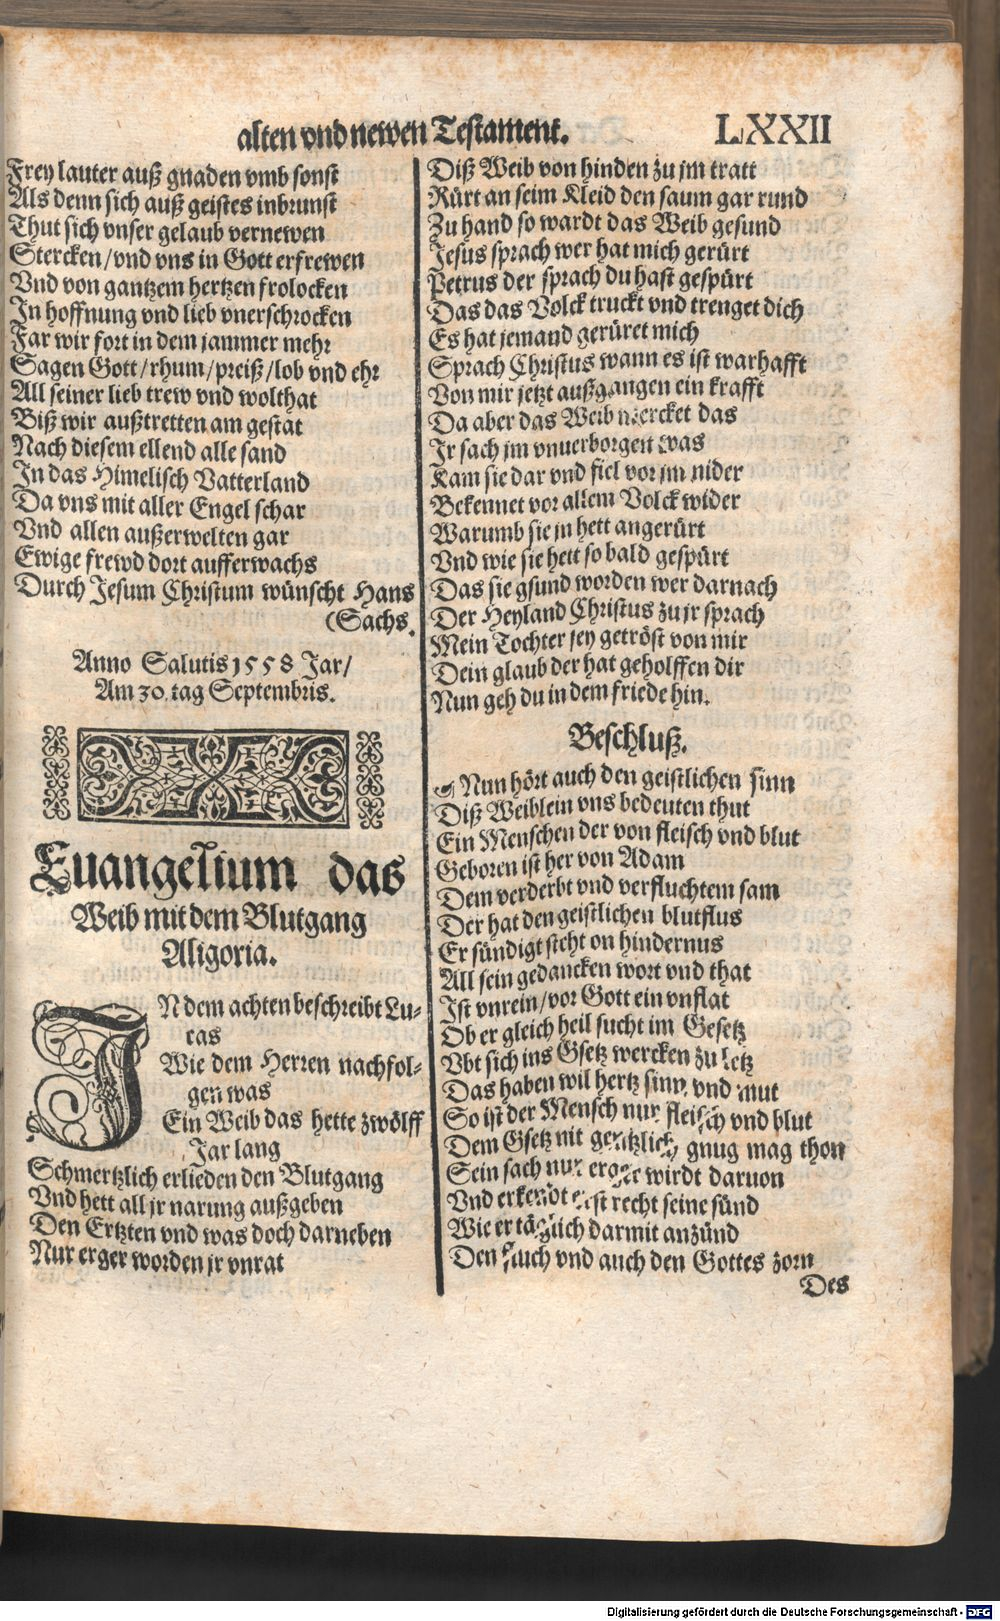 alten vnd newen Testament. LXXII
Frey lauter auß gnaden vmb sonst
Als denn sich auß geistes inbrunst
Thut sich vnser gelaub vernewen
Stercken/vnd vns in Gott erfrewen
Vnd von gantzem hertzen frolocken
In hoffnung vnd lieb vnerschrocken
Far wir fort in dem jammer mehr
Sagen Gott/rhum/preiß/lob vnd ehr
All seiner lieb trew vnd wolthat
Biß wir außtretten am gestat
Nach diesem ellend alle sand
In das Himelisch Vatterland
Da vns mit aller Engel schar
Vnd allen außerwelten gar
Ewige frewd dort aufferwachs
Durch Jesum Christum wünscht Hans
(Sachs.
Anno Salutis 1558 Jar/
Am 30. tag Septembris.
Euangelium das
Weib mit dem Blutgang
Aligoria.
IN dem achten beschreibt Lu-
cas
Wie dem Herren nachfol-
gen was
Ein Weib das hette zwölff
Jar lang
Schmertzlich erlieden den Blutgang
Vnd hett all jr narung außgeben
Den Ertzten vnd was doch darneben
Nur erger worden jr vnrat
Diß Weib von hinden zu jm tratt
Rürt an seim Kleid den saum gar rund
Zu hand so wardt das Weib gesund
Jesus sprach wer hat mich gerürt
Petrus der sprach du hast gespürt
Das das Volck truckt vnd trenget dich
Es hat jemand gerüret mich
Sprach Christus wann es ist warhafft
Von mir jetzt außgangen ein krafft
Da aber das Weib mercket das
Ir sach jm vnuerborgen was
Kam sie dar vnd fiel vor jm nider
Bekennet vor allem Volck wider
Warumb sie jn hett angerürt
Vnd wie sie hett so bald gespürt
Das sie gsund worden wer darnach
Der Heyland Christus zu jr sprach
Mein Tochter sey getröst von mir
Dein glaub der hat geholffen dir
Nun geh du in dem friede hin.
Beschluß.
Nun hört auch den geistlichen sinn
Diß Weiblein vns bedeuten thut
Ein Menschen der von fleisch vnd blut
Geboren ist her von Adam
Dem verderbt vnd verfluchtem sam
Der hat den geistlichen blutflus
Er sündigt steht on hindernus
All sein gedancken wort vnd that
Ist vnrein/vor Gott ein vnflat
Ob er gleich heil sucht im Gesetz
Vbt sich ins Gsetz wercken zu letz
Das haben wil hertz sinn vnd mut
So ist der Mensch nur fleisch vnd blut
Dem Gsetz nit gentzlich gnug mag thon
Sein sach nur erger wirdt daruon
Vnd erkendt erst recht seine sünd
Wie er täglich darmit anzünd
Den fluch vnd auch den Gottes zorn
Des
Digitalisierung gefördert durch die Deutsche Forschungsgemeinschaft - DFG